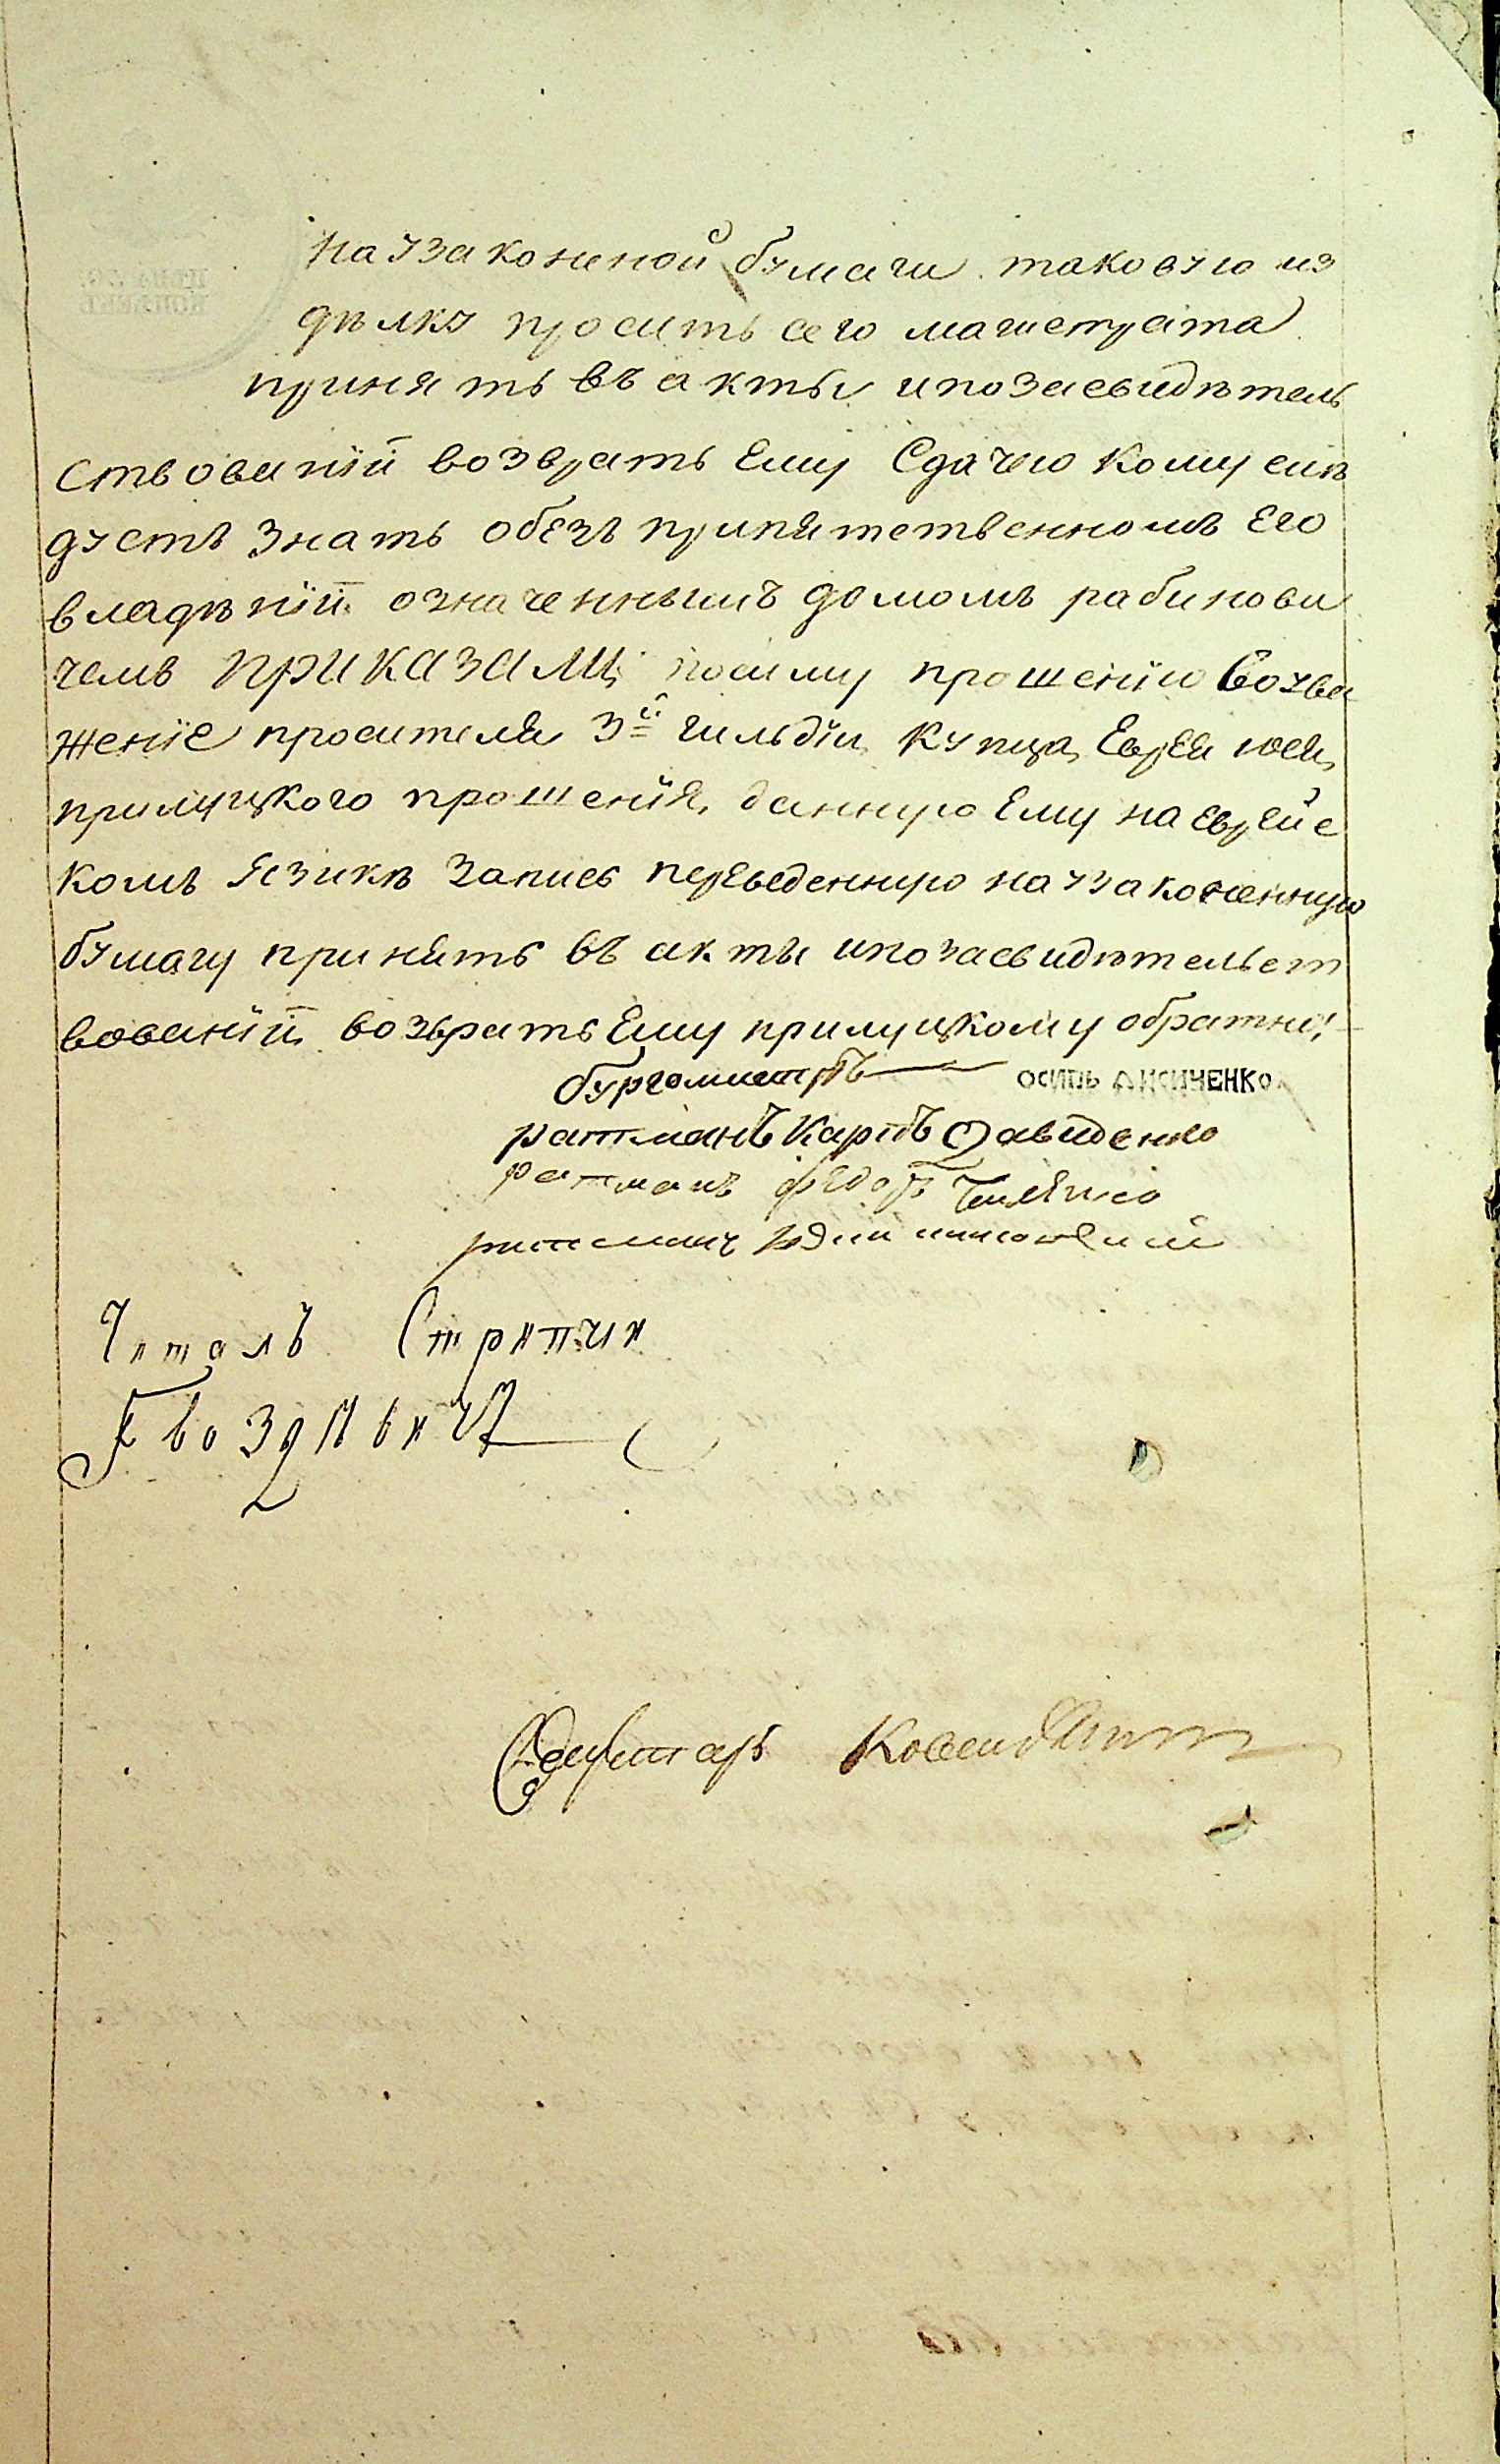 на узаконеной бумаги таковую из
дѣлку просить сего магистрата
принять въ акты ипозасвидѣтель
ствованіи возвратъ Ему Сдачею кому слѣ
дуетъ знать обезъ припятственномъ Его
владѣніи означеннымъ домомъ рабинови
чемъ ПРИКАЗАЛИ посиму прошенію воува
женіе просителя 3й гильдіи купца Еврея
прилуцкого прошенія, данную Ему на еврейс
комъ Язикѣ запись переведенную на узаконенную
бумагу принять въ акты ипозасвидѣтельст
вованіи возвратъ Ему прилуцкому обратно!
бургомистръ ОСИПЪ АНСИЧЕНКО
ратманъ Карпъ Давиденко
ратманъ федоръ
ратманъ
Читалъ Стряпчи
Гвоздѣвичъ
Секретарь
ЦѢНА
КОПѢЕКЪ